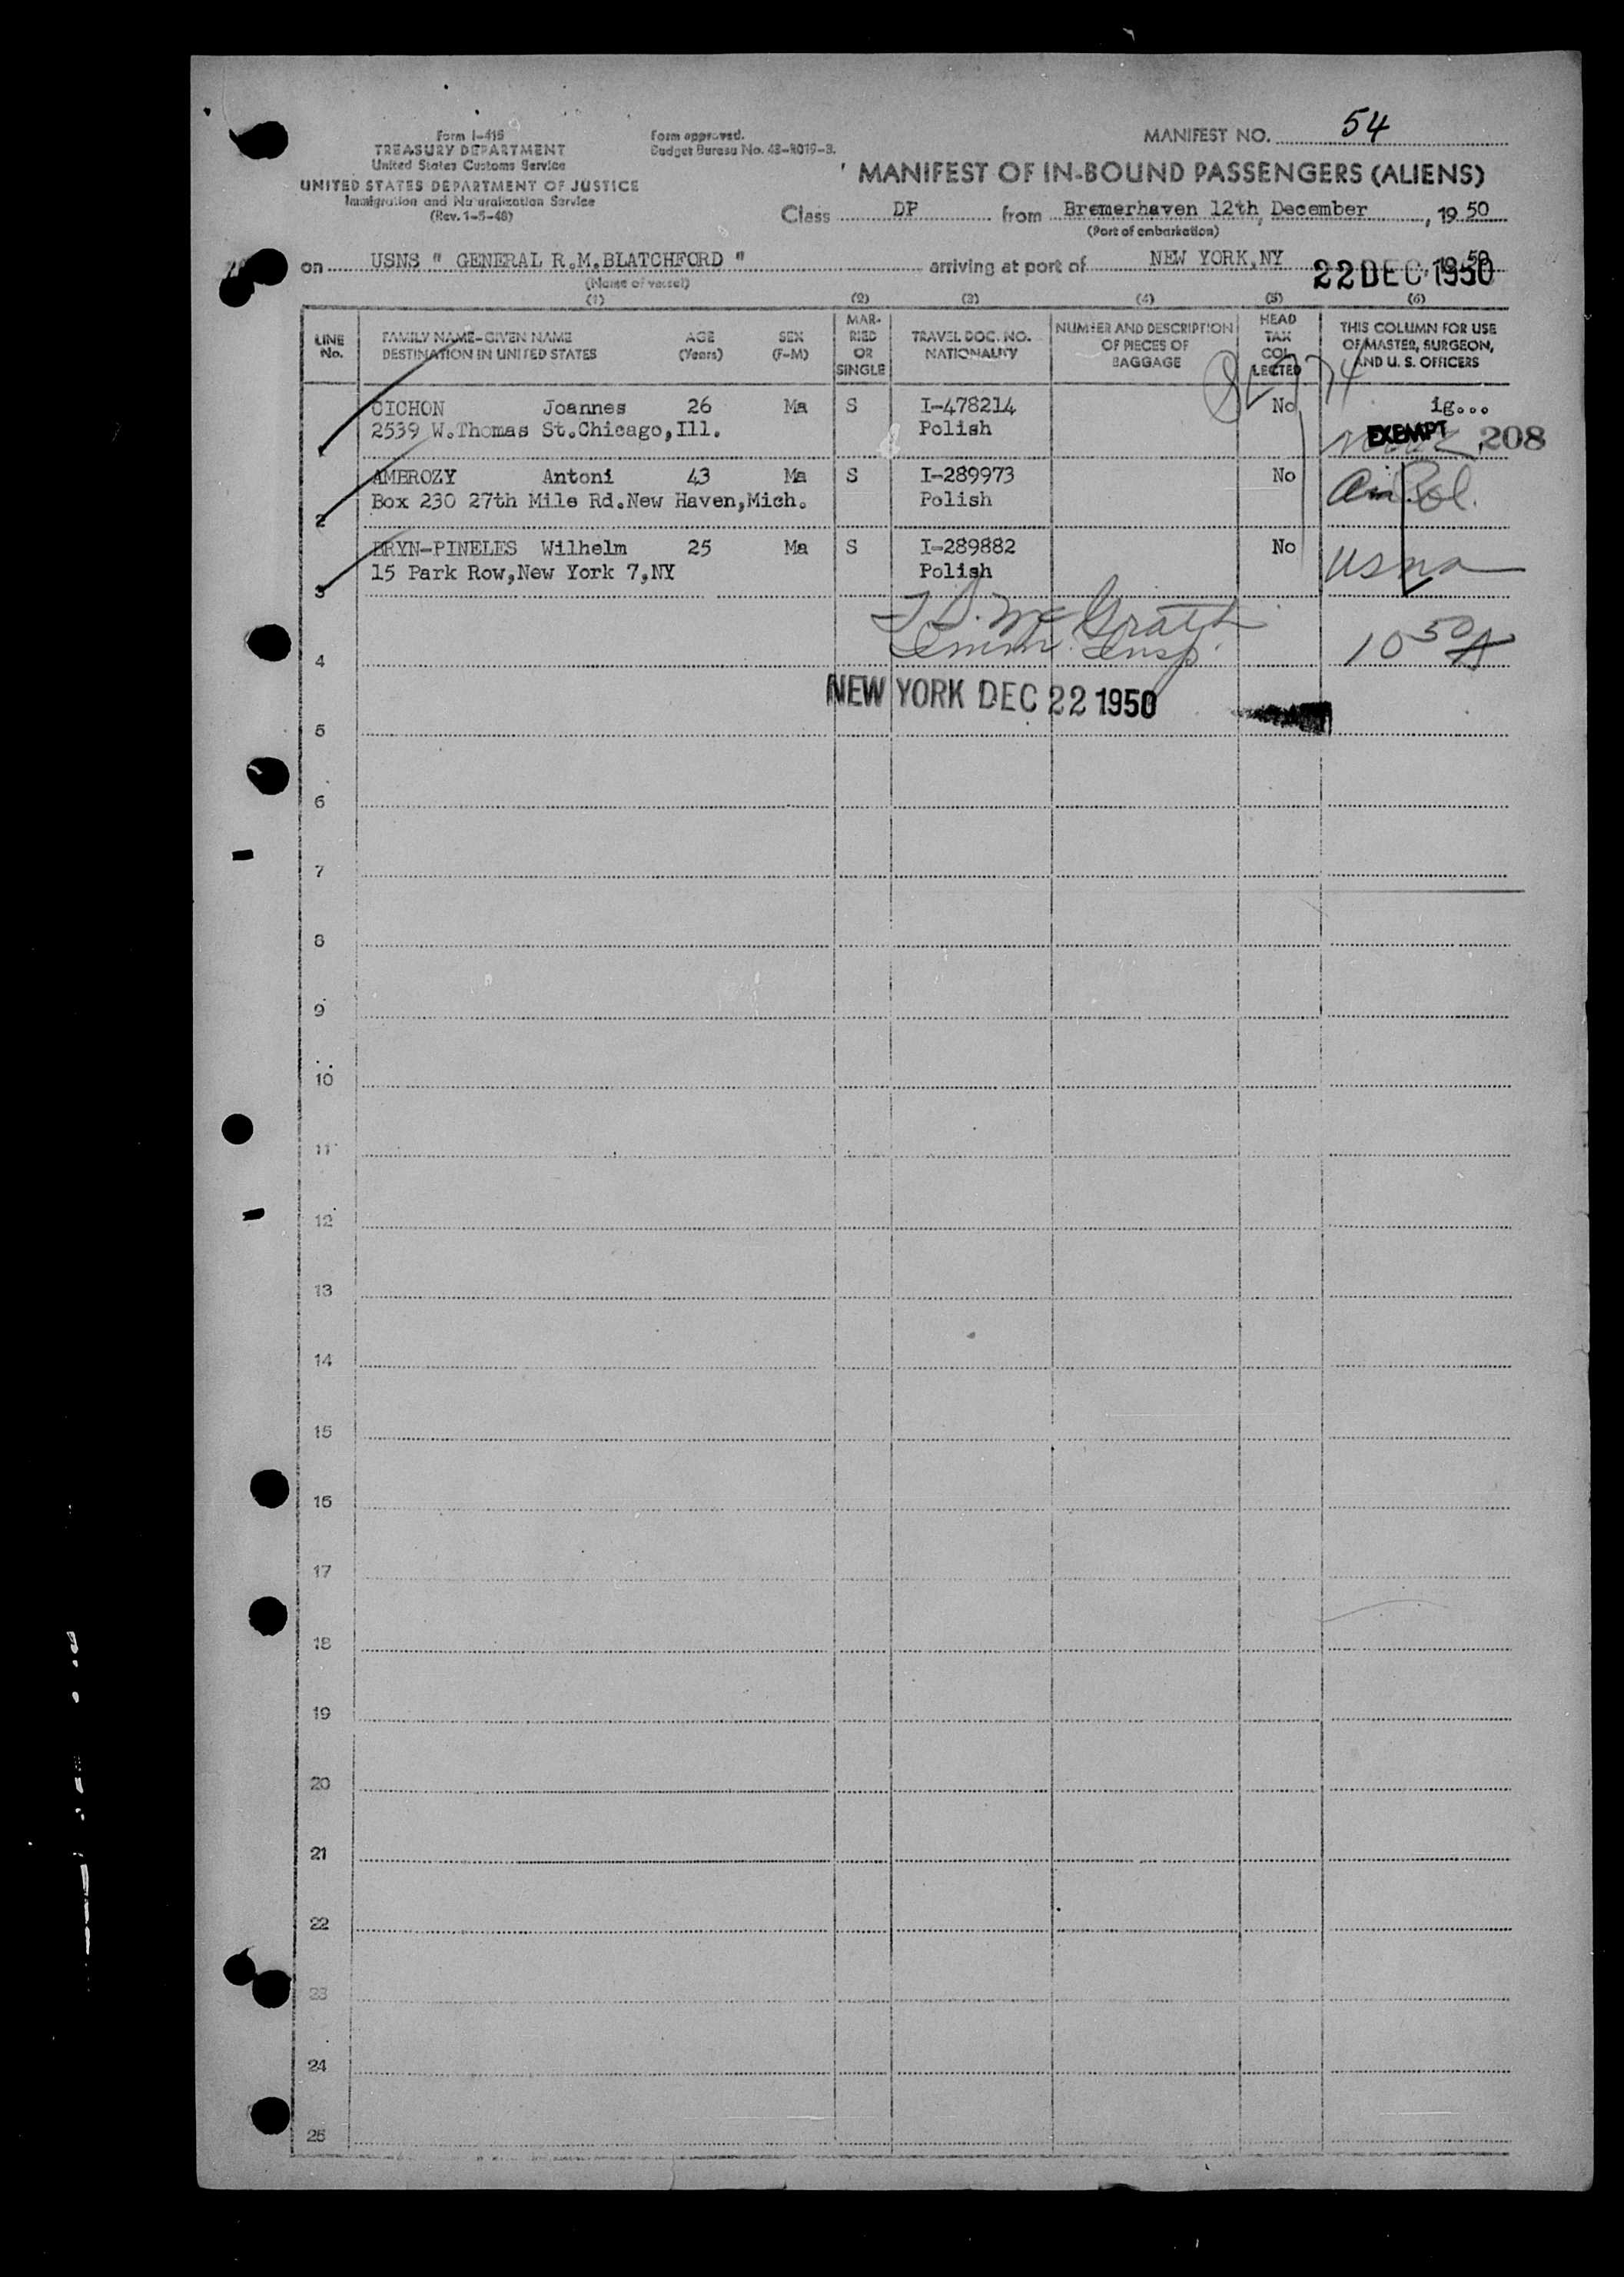 Form I-415
TREASURY DEPARTMENT
United States Customs Service
UNITED STATES DEPARTMENT OF JUSTICE
Immigration and Naturalization Service
(Rev. 1-5-48)
Form approved.
Budget Bureau No. 43-R019-3.
MANIFEST NO. 54
MANIFEST OF IN-BOUND PASSENGERS (ALIENS)
Class DP from Bremerhaven 12th, December, 19 50
(Port of embarkation)
on USNS " GENERAL R.M.BLATCHFORD " arriving at port of NEW YORK,NY 19 50
22 DEC 1950
(Name of vessel)
(1) (2) (3) (4) (5) (6)
LINE No.
FAMILY NAME-GIVEN NAME AGE SEX
DESTINATION IN UNITED STATES (Years) (F-M)
MARRIED OR SINGLE
TRAVEL DOC. NO. NATIONALITY
NUMBER AND DESCRIPTION OF PIECES OF BAGGAGE
HEAD TAX COLLECTED
THIS COLUMN FOR USE OF MASTER, SURGEON, AND U. S. OFFICERS
1 CICHON Joannes 26 Ma S I-478214 No ig...
2539 W.Thomas St.Chicago,Ill. Polish EXEMPT 208
2 AMBROZY Antoni 43 Ma S I-289973 No
Box 230 27th Mile Rd.New Haven,Mich. Polish
3 BRYN-PINELES Wilhelm 25 Ma S I-289882 No
15 Park Row,New York 7,NY Polish usna
McGrath
Imm. Insp.
10 50 A
4
NEW YORK DEC 22 1950
5
6
7
8
9
10
11
12
13
14
15
16
17
18
19
20
21
22
23
24
25